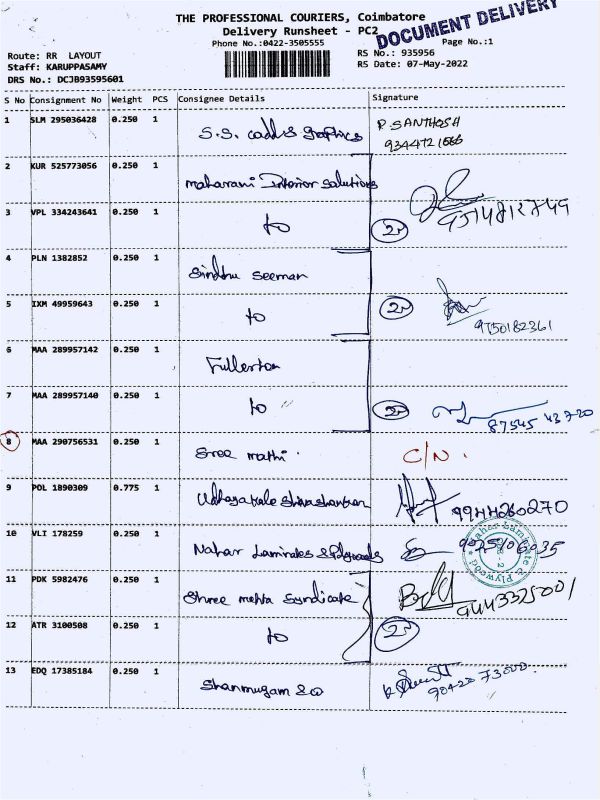 THE PROFESSIONAL COURIERS, Coimbatore
Delivery Runsheet - PC2
DOCUMENT DELIVERY
Phone No.:0422-3505555
Page No.:1
Route: RR LAYOUT
RS No.: 935956
Staff: KARUPPASAMY
RS Date: 07-May-2022
DRS No.: DCJB93595601
S No Consignment No Weight PCS Consignee Details Signature
1 SLM 295036428 0.250 1 S.S. cadd & graphics P. SANTHOSH
9344721566
2 KUR 525773056 0.250 1 maharani Interior Solutions
9514812749
3 VPL 334243641 0.250 1 to
4 PLN 1382852 0.250 1 Sindhu Seeman
5 IXM 49959643 0.250 1 to
9750182361
6 MAA 289957142 0.250 1 Fullerton
7 MAA 289957140 0.250 1 to
87545 43720
8 MAA 290756531 0.250 1 Sree mathi. C/N.
9 POL 1890309 0.775 1 9944260270
10 VLI 178259 0.250 1 Nahar Laminates & Plywoods
11 PDK 5982476 0.250 1 Shree mehta Syndicate
9443325001
12 ATR 3100508 0.250 1 to
13 EDQ 17385184 0.250 1 Shanmugam & co